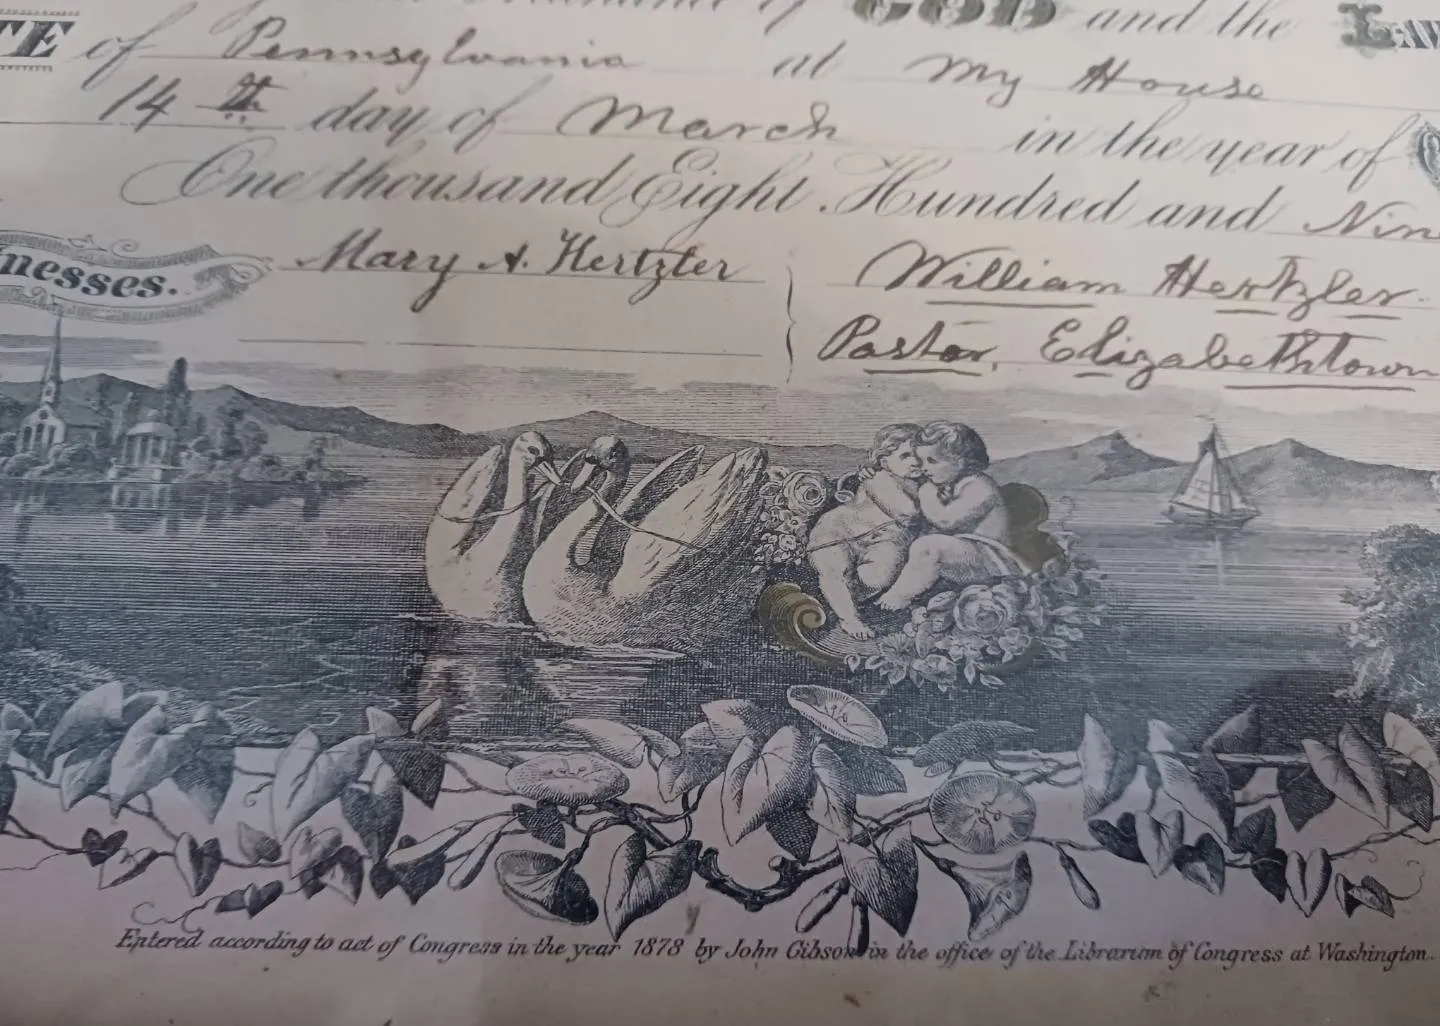 of GOD and the
of Pennsylvania at My House
14th day of March in the year of
One thousand Eight Hundred and
nesses. Mary A. Hertzler William Hertzler.
Pastor, Elizabethtown
Entered according to act of Congress in the year 1878 by John Gibson in the office of the Librarian of Congress at Washington.